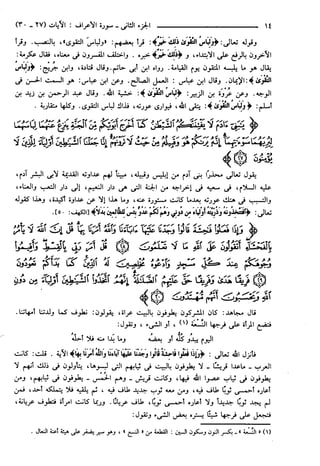 ١٤ الجزء الثاني - سورة الأعراف : الآيات (٢٧ - ٣٠)
وقوله تعالى: ﴿وَلِبَاسُ التَّقْوَىٰ ذَٰلِكَ خَيْرٌ﴾: قرأ بعضهم: «ولباسَ التقوى»، بالنصب. وقرأ
الآخرون بالرفع على الابتداء، و ﴿ذَٰلِكَ خَيْرٌ﴾ خبره. واختلف المفسرون في معناه، فقال عكرمة:
يقال هو ما يلبسه المتقون يوم القيامة. رواه ابن أبي حاتم. وقال قتادة، وابن جُرَيج: ﴿وَلِبَاسُ
التَّقْوَىٰ﴾: الإيمان. وقال ابن عباس: العمل الصالح. وعن ابن عباس: هو السمت الحسن في
الوجه. وعن عُرْوَة بن الزبير: ﴿وَلِبَاسُ التَّقْوَىٰ﴾: خشية الله. وقال عبد الرحمن بن زيد بن
أسلم: ﴿وَلِبَاسُ التَّقْوَىٰ﴾: يتقي الله، فيواري عورته، فذاك لباس التقوى. وكلها متقاربة.
يَٰبَنِىٓ ءَادَمَ لَا يَفْتِنَنَّكُمُ ٱلشَّيْطَٰنُ كَمَآ أَخْرَجَ أَبَوَيْكُم مِّنَ ٱلْجَنَّةِ يَنزِعُ عَنْهُمَا لِبَاسَهُمَا
لِيُرِيَهُمَا سَوْءَٰتِهِمَآ إِنَّهُۥ يَرَىٰكُمْ هُوَ وَقَبِيلُهُۥ مِنْ حَيْثُ لَا تَرَوْنَهُمْ إِنَّا جَعَلْنَا ٱلشَّيَٰطِينَ أَوْلِيَآءَ لِلَّذِينَ
لَا يُؤْمِنُونَ
يقول تعالى محذرًا بني آدم من إبليس وقبيله، مبينًا لهم عداوته القديمة لأبي البشر آدم،
عليه السلام، في سعيه في إخراجه من الجنة التي هي دار النعيم، إلى دار التعب والعناء،
والتسبب في هتك عورته بعدما كانت مستورة عنه، وما هذا إلا عن عداوة أكيدة، وهذا كقوله
تعالى: ﴿أَفَتَتَّخِذُونَهُ وَذُرِّيَّتَهُ أَوْلِيَاءَ مِن دُونِي وَهُمْ لَكُمْ عَدُوٌّ بِئْسَ لِلظَّالِمِينَ بَدَلًا﴾ [الكهف: ٥٠].
وَإِذَا فَعَلُوا۟ فَٰحِشَةً قَالُوا۟ وَجَدْنَا عَلَيْهَآ ءَابَآءَنَا وَٱللَّهُ أَمَرَنَا بِهَا قُلْ إِنَّ ٱللَّهَ لَا يَأْمُرُ
بِٱلْفَحْشَآءِ أَتَقُولُونَ عَلَى ٱللَّهِ مَا لَا تَعْلَمُونَ قُلْ أَمَرَ رَبِّى بِٱلْقِسْطِ وَأَقِيمُوا۟
وُجُوهَكُمْ عِندَ كُلِّ مَسْجِدٍ وَٱدْعُوهُ مُخْلِصِينَ لَهُ ٱلدِّينَ كَمَا بَدَأَكُمْ تَعُودُونَ
فَرِيقًا هَدَىٰ وَفَرِيقًا حَقَّ عَلَيْهِمُ ٱلضَّلَٰلَةُ إِنَّهُمُ ٱتَّخَذُوا۟ ٱلشَّيَٰطِينَ أَوْلِيَآءَ مِن دُونِ
ٱللَّهِ وَيَحْسَبُونَ أَنَّهُم مُّهْتَدُونَ
قال مجاهد: كان المشركون يطوفون بالبيت عراة، يقولون: نطوف كما ولدتنا أمهاتنا.
فتضع المرأة على فرجها النِّسْعَة (١)، أو الشيء، وتقول:
اليوم يبدُو بعضُه أو كلّه وما بَدا منه فلا أحلّهُ
فأنزل الله تعالى: ﴿وَإِذَا فَعَلُوا فَاحِشَةً قَالُوا وَجَدْنَا عَلَيْهَا آبَاءَنَا وَاللَّهُ أَمَرَنَا بِهَا﴾ الآية. قلت: كانت
العرب - ماعدا قريشًا - لا يطوفون بالبيت في ثيابهم التي لبسوها، يتأولون في ذلك أنهم لا
يطوفون في ثياب عصوا الله فيها، وكانت قريش - وهم الحُمْس - يطوفون في ثيابهم، ومن
أعاره أحمسي ثوبًا طاف فيه، ومن معه ثوب جديد طاف فيه، ثم يلقيه فلا يتملكه أحد، فمن
لم يجد ثوبًا جديدًا ولا أعاره أحمسي ثوبًا، طاف عريانًا. وربما كانت امرأة فتطوف عريانة،
فتجعل على فرجها شيئًا يستره بعض الشيء وتقول:
(١) «النسعة» - بكسر النون وسكون السين: القطعة من «النسع»، وهو سير يضفر على هيئة أعنة النعال.